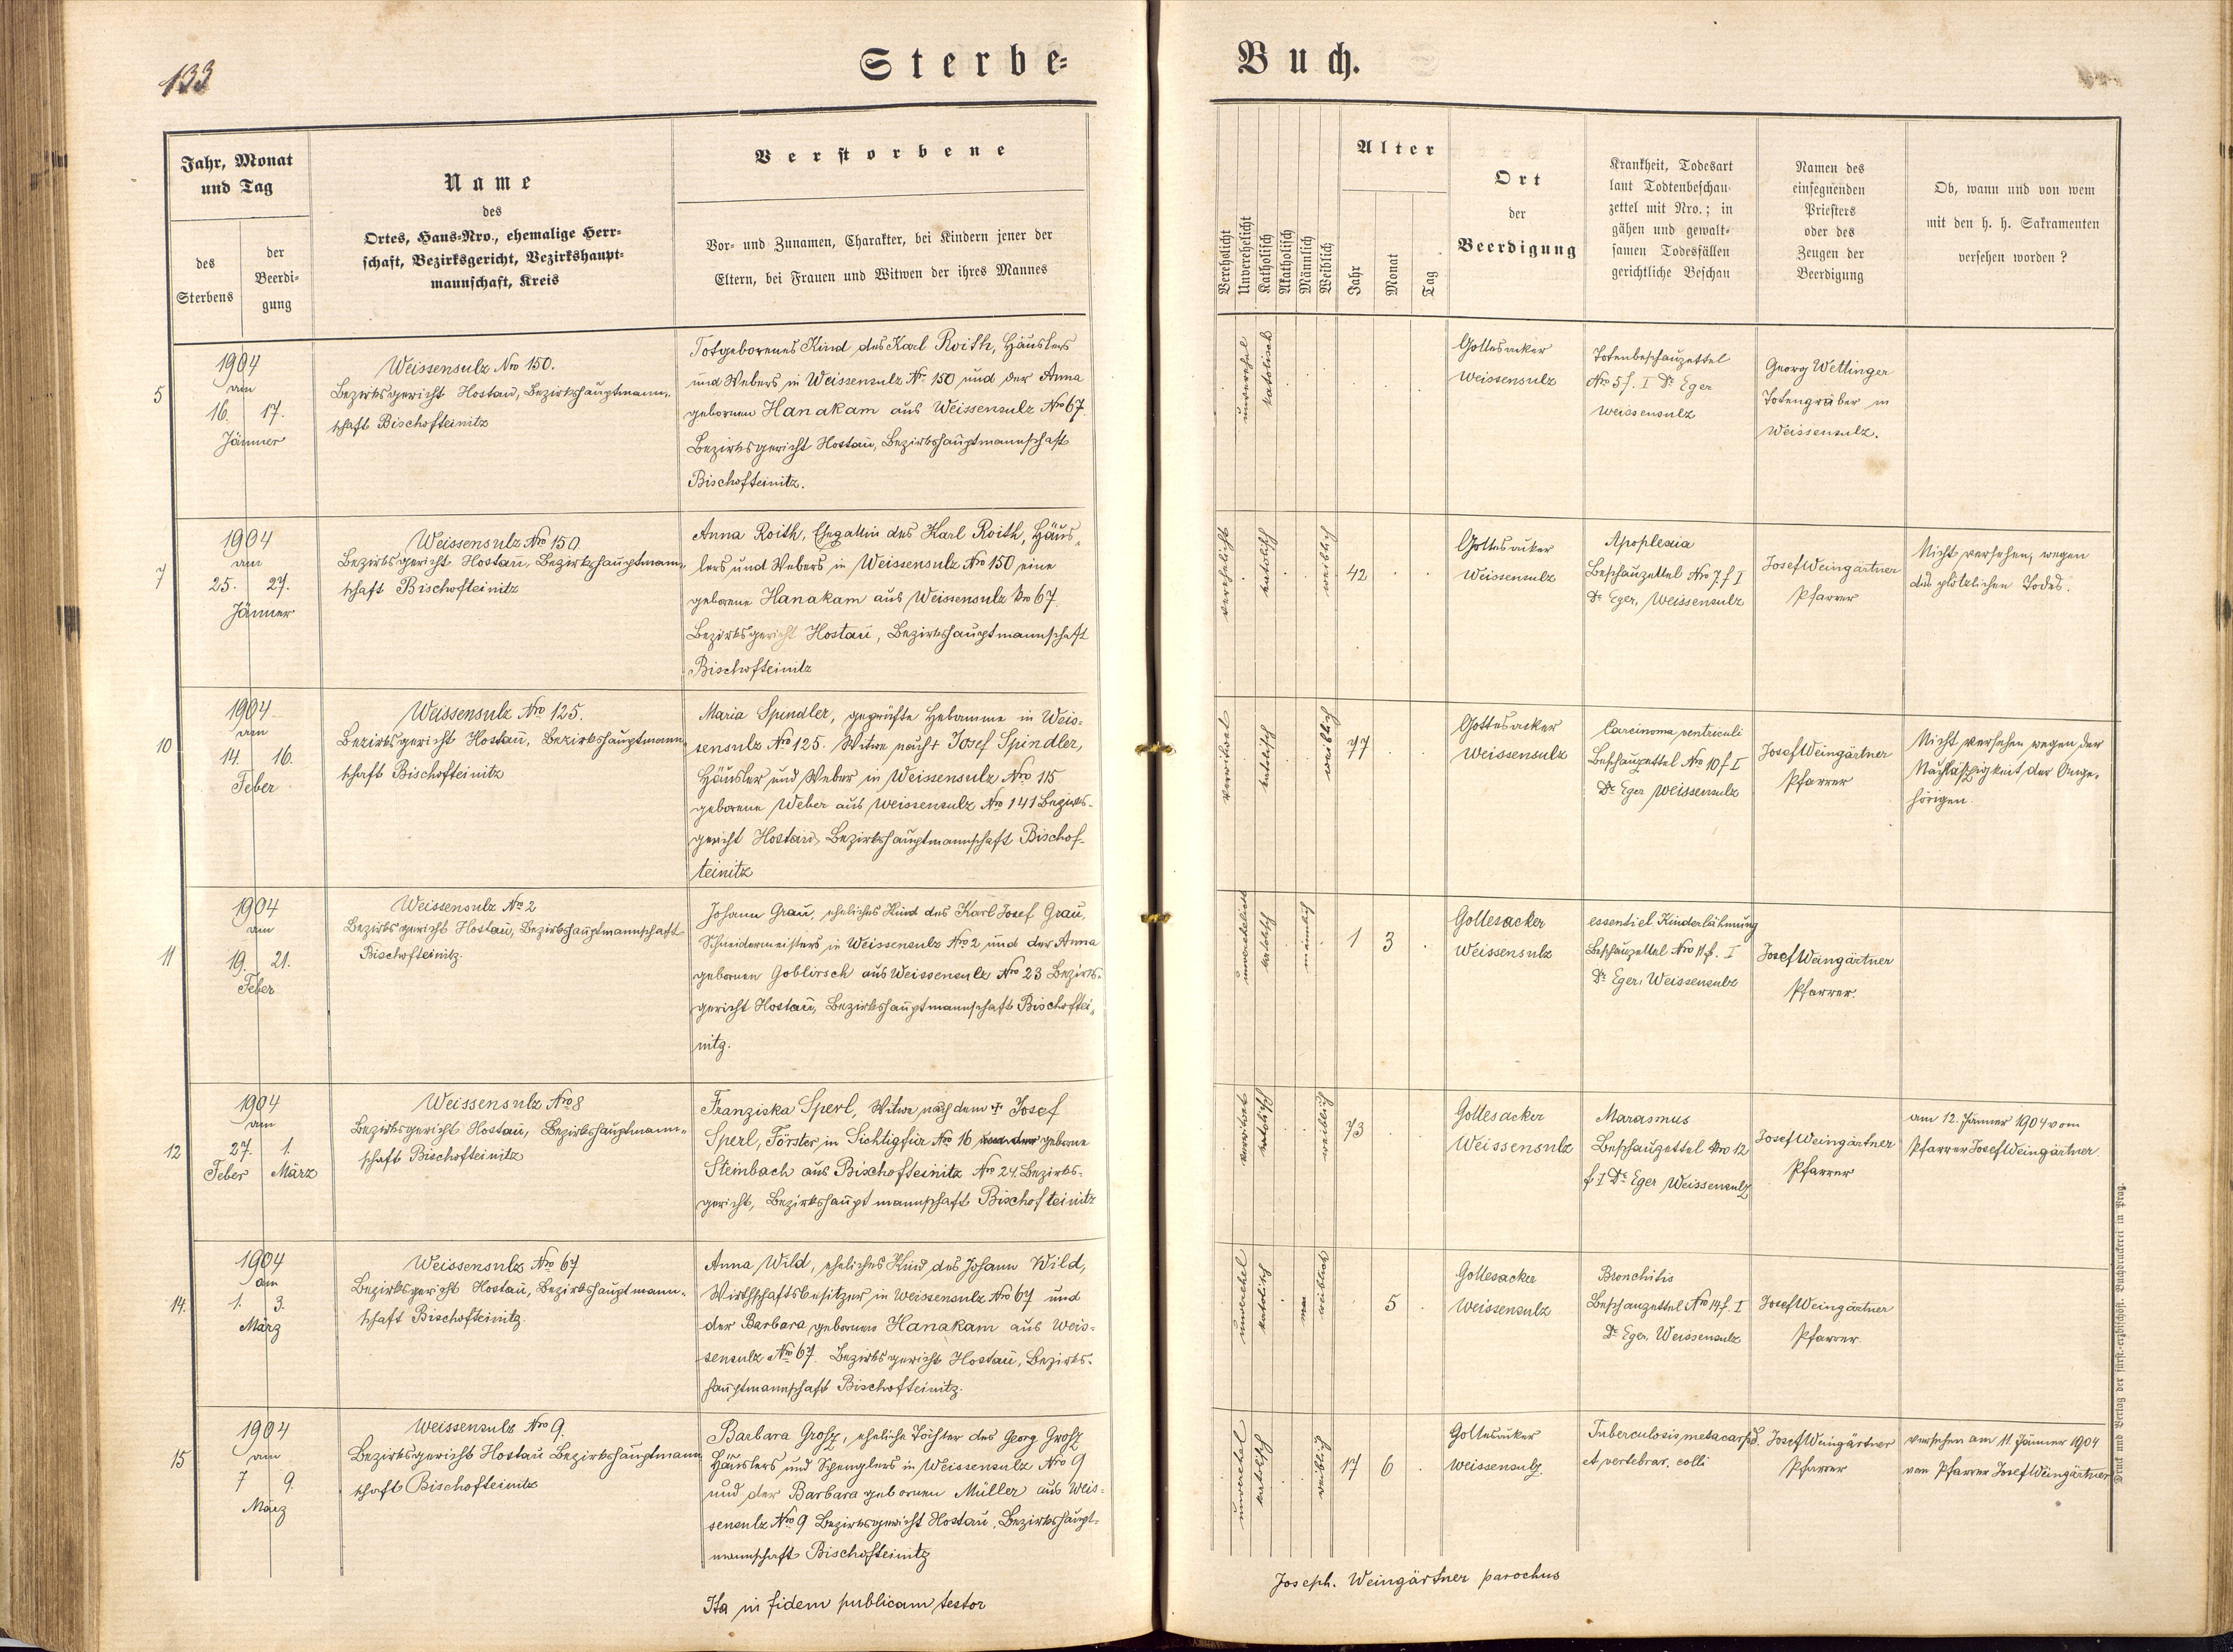 133
Sterbe-
Buch.
Jahr, Monat
und Tag
des
Sterbens
der
Beerdi-
gung
Name
des
Ortes, Haus-Nro., ehemalige Herr-
schaft, Bezirksgericht, Bezirkshaupt-
mannschaft, Kreis
Verstorbene
Vor- und Zunamen, Charakter, bei Kindern jener der
Eltern, bei Frauen und Witwen der ihres Mannes
Verehelicht
Unverehelicht
Katholisch
Akatholisch
Männlich
Weiblich
Alter
Jahr
Monat
Tag
Ort
der
Beerdigung
Krankheit, Todesart
laut Todtenbeschau-
zettel mit Nro.; in
gähen und gewalt-
samen Todesfällen
gerichtliche Beschau
Namen des
einsegnenden
Priesters
oder des
Zeugen der
Beerdigung
Ob, wann und von wem
mit den h. h. Sakramenten
versehen worden?
5
1904
am
16. 17.
Jänner
Weissensulz Nro 150.
Bezirksgericht Hostau, Bezirkshauptmann-
schaft Bischofteinitz
Totgeborenes Kind des Karl Roith, Häuslers
und Webers in Weissensulz No 150 und der Anna
gebornen Hanakam aus Weissensulz Nro 67
Bezirksgericht Hostau, Bezirkshauptmannschaft
Bischofteinitz.
unverehel
katolisch
Gottesacker
Weissensulz
Totenbeschauzettel
Nro 5 f. I Dr Eger
Weissensulz
Georg Wettinger
Totengräber in
Weissensulz.
7
1904
am
25. 27.
Jänner
Weissensulz Nro 150
Bezirksgericht Hostau, Bezirkshauptmann-
schaft Bischofteinitz
Anna Roith, Ehegattin des Karl Roith, Häus-
lers und Webers in Weissensulz Nro 150 eine
geborene Hanakam aus Weissensulz Nro 67.
Bezirksgericht Hostau, Bezirkshauptmannschaft
Bischofteinitz
verehelicht
katolisch
weiblich
42
Gottesacker
Weissensulz
Apoplexia
Beschauzettel Nro 7 f I
Dr Eger, Weissensulz
Josef Weingärtner
Pfarrer
Nicht versehen, wegen
des plötzlichen Todes.
10
1904
am
14. 16.
Feber
Weissensulz Nro 125.
Bezirksgericht Hostau, Bezirkshauptmann-
schaft Bischofteinitz
Maria Spindler, geprüfte Hebamme in Weis-
sensulz Nro 125. Witwe nach + Josef Spindler,
Häusler und Weber in Weissensulz Nro 115
geborene Weber aus Weissensulz Nro 141 Bezirks-
gericht Hostau, Bezirkshauptmannschaft Bischof-
teinitz
verwitwet
katolisch
weiblich
77
Gottesacker
Weissensulz
Carcinoma ventriculi
Beschauzettel Nro 10 f I
Dr Eger Weissensulz
Josef Weingärtner
Pfarrer
Nicht versehen wegen der
Nachlässigkeit der Ange-
hörigen.
11
1904
am
19. 21.
Feber
Weissensulz No 2
Bezirksgericht Hostau, Bezirkshauptmannschaft
Bischofteinitz.
Johann Grau, eheliches Kind des Karl Josef Grau,
Schneidermeisters in Weissensulz Nro 2 und der Anna
gebornen Goblirsch aus Weissensulz Nro 23 Bezirks-
gericht Hostau, Bezirkshauptmannschaft Bischoftei-
nitz.
unverehelicht
katolisch
männlich
1 3
Gottesacker
Weissensulz
essentiel. Kinderlähmung
Beschauzettel Nro 11 f. I
Dr Eger, Weissensulz
Josef Weingärtner
Pfarrer.
12
1904
am
27. 1.
Feber März
Weissensulz Nro 8
Bezirksgericht Hostau, Bezirkshauptmann-
schaft Bischofteinitz
Franziska Sperl, Witwe nach dem + Josef
Sperl, Förster in Sichtigfür No 16 und der geborne
Steinbach aus Bischofteinitz Nro 24. Bezirks-
gericht, Bezirkshauptmannschaft Bischofteinitz
verwitwet
katolisch
weiblich
73
Gottesacker
Weissensulz
Marasmus
Beschauzettel Nro 12
f I Dr Eger Weissensulz
Josef Weingärtner
Pfarrer
am 12. Jänner 1904 vom
Pfarrer Josef Weingärtner.
14.
1904
am
1. 3.
März
Weissensulz Nro 67
Bezirksgericht Hostau, Bezirkshauptmann-
schaft Bischofteinitz.
Anna Wild, eheliches Kind des Johann Wild,
Wirthschaftsbesitzer in Weissensulz Nro 67 und
der Barbara gebornen Hanakam aus Weis-
sensulz Nro 67. Bezirksgericht Hostau, Bezirks-
hauptmannschaft Bischofteinitz.
unverehel
katolisch
weiblich
5
Gottesacker
Weissensulz
Bronchitis
Beschauzettel Nro 14 f. I
Dr Eger, Weissensulz
Josef Weingärtner
Pfarrer.
15
1904
am
7 9.
März
Weissensulz Nro 9.
Bezirksgericht Hostau Bezirkshauptmann
schaft Bischofteinitz
Barbara Grosz, eheliche Tochter des Georg Grosz
Häuslers und Schenglers in Weissensulz Nro 9
und der Barbara gebornen Müller aus Weis-
sensulz Nro 9 Bezirksgericht Hostau, Bezirkshaupt-
mannschaft Bischofteinitz
unverehel
katolisch
weiblich
17 6
Gottesacker
Weissensulz.
Tuberculosis metacarpid.
et vertebrar. colli
Josef Weingärtner
Pfarrer
versehen am 11. Jänner 1904
vom Pfarrer Josef Weingärtner
Ita in fidem publicam testor
Joseph. Weingärtner parochus
Druck und Verlag der fürst.-erzbischöfl. Buchdruckerei in Prag.